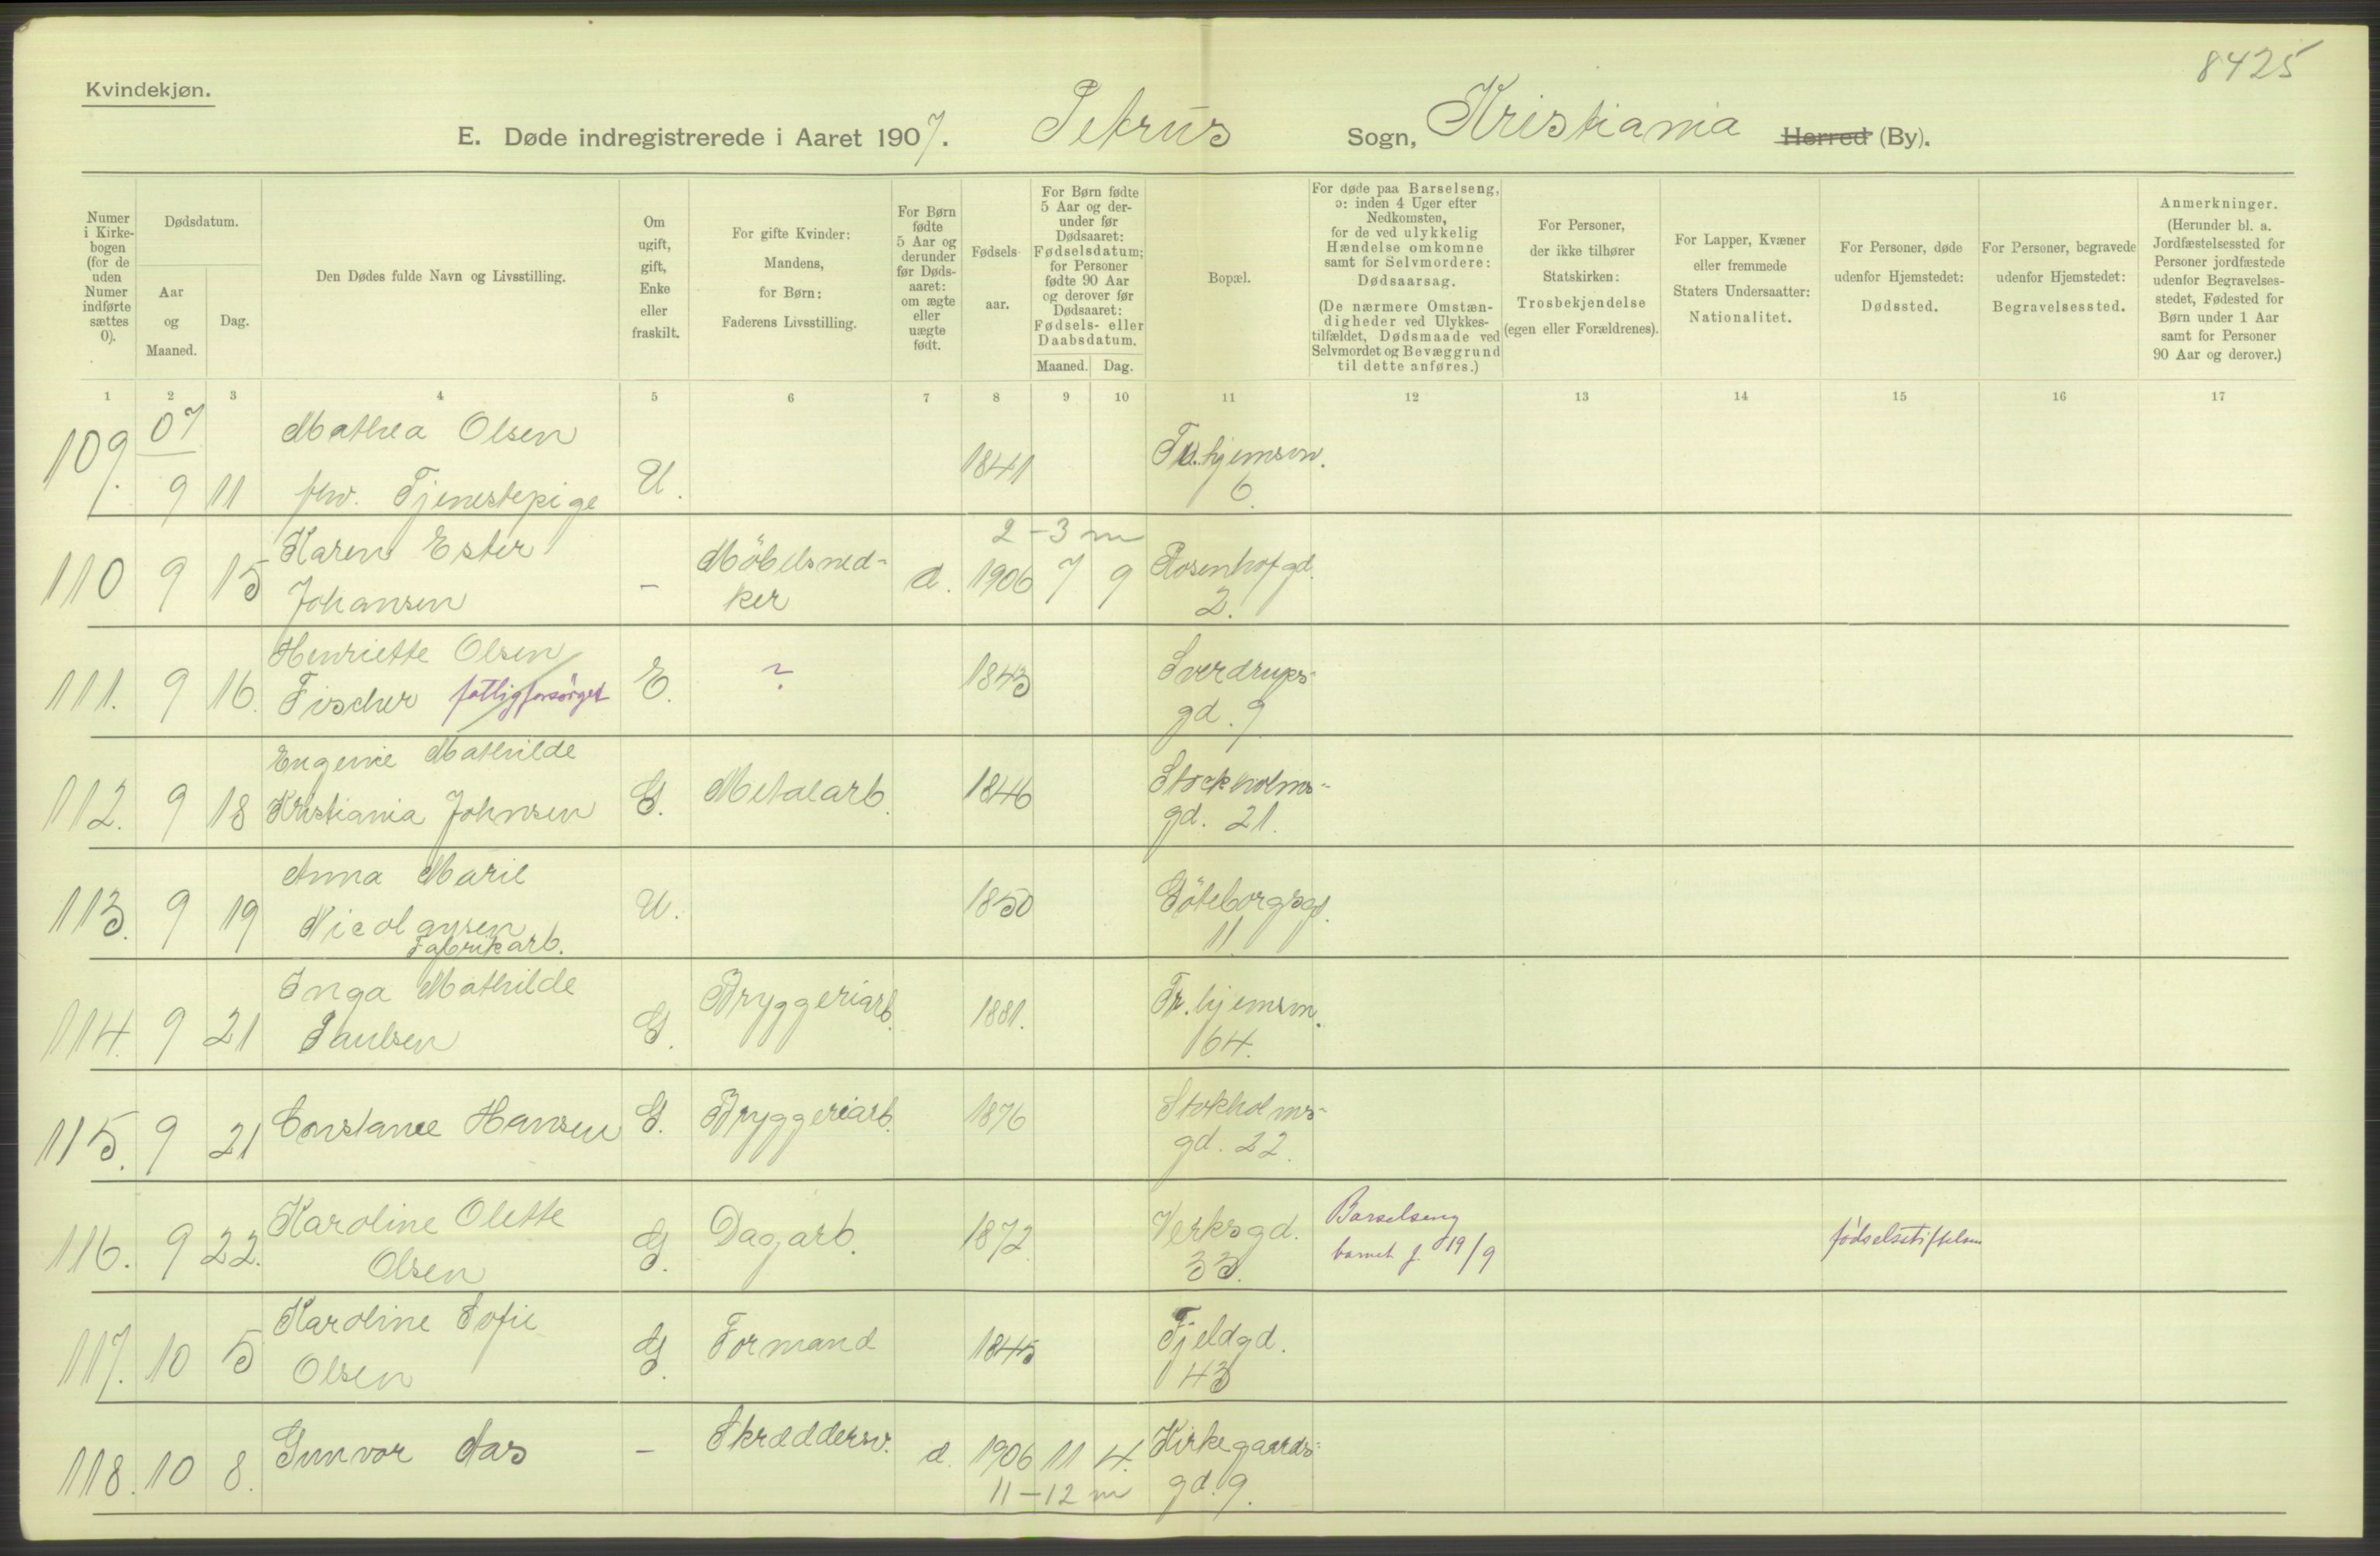 8425
Kvindekjøn.
E. Døde indregistrerede i Aaret 1907. Petrus Sogn, Kristiania Herred (By).
Numer i Kirkebogen (for de uden Numer indførte sættes 0).
Dødsdatum.
Aar og Maaned.
Dag.
Den Dødes fulde Navn og Livsstilling.
Om ugift, gift, Enke eller fraskilt.
For gifte Kvinder: Mandens, for Børn: Faderens Livsstilling.
For Børn fødte 5 Aar og derunder før Dødsaaret: om ægte eller uægte født.
Fødselsaar.
For Børn fødte 5 Aar og derunder før Dødsaaret: Fødselsdatum; for Personer fødte 90 Aar og derover før Dødsaaret: Fødsels- eller Daabsdatum.
Maaned. Dag.
Bopæl.
For døde paa Barselseng, ɔ: inden 4 Uger efter Nedkomsten, for de ved ulykkelig Hændelse omkomne samt for Selvmordere: Dødsaarsag.
(De nærmere Omstændigheder ved Ulykkestilfældet, Dødsmaade ved Selvmordet og Bevæggrund til dette anføres.)
For Personer, der ikke tilhører Statskirken: Trosbekjendelse (egen eller Forældrenes).
For Lapper, Kvæner eller fremmede Staters Undersaatter: Nationalitet.
For Personer, døde udenfor Hjemstedet: Dødssted.
For Personer, begravede udenfor Hjemstedet: Begravelsessted.
Anmerkninger.
(Herunder bl. a. Jordfæstelsessted for Personer jordfæstede udenfor Begravelsesstedet, Fødested for Børn under 1 Aar samt for Personer 90 Aar og derover.)
1 2 3 4 5 6 7 8 9 10 11 12 13 14 15 16 17
07
109. 9 11 Mathea Olsen
fhv. Tjenestepige U. 1841 Tr.hjemsvn. 6.
2-3 m
110 9 15 Karen Ester
Johansen - Möbelsned-
ker d. 1906 7 9 Rosenhofgd.
2.
111. 9 16. Henriette Olsen
Fischer fattigforsörget E. ? 1843 Sverdrups-
gd. 9
112. 9 18 Eugenie Mathilde
Kristiania Johnsen G. Metalarb. 1846 Stockholms-
gd. 21.
113. 9 19 Anna Marie
Nicolaysen
Fabrikarb. U. 1850 Göteborgsgd.
11
114. 9 21 Inga Mathilde
Paulsen G. Bryggeriarb. 1881. Tr.hjemsvn.
64.
115. 9 21 Constance Hansen G. Bryggeriarb. 1876 Stokholms-
gd. 22.
116. 9 22. Karoline Olette
Olsen G. Dagarb. 1872 Verksgd.
33. Barselseng
barnet f. 19/9 födselsstiftelsen
117. 10 5 Karoline Sofie
Olsen G. Formand 1845 Fjeldgd.
43
118. 10 8. Gunvor Aas - Skræddersv. d. 1906 11 4. Kirkegaards-
gd. 9.
11-12 m